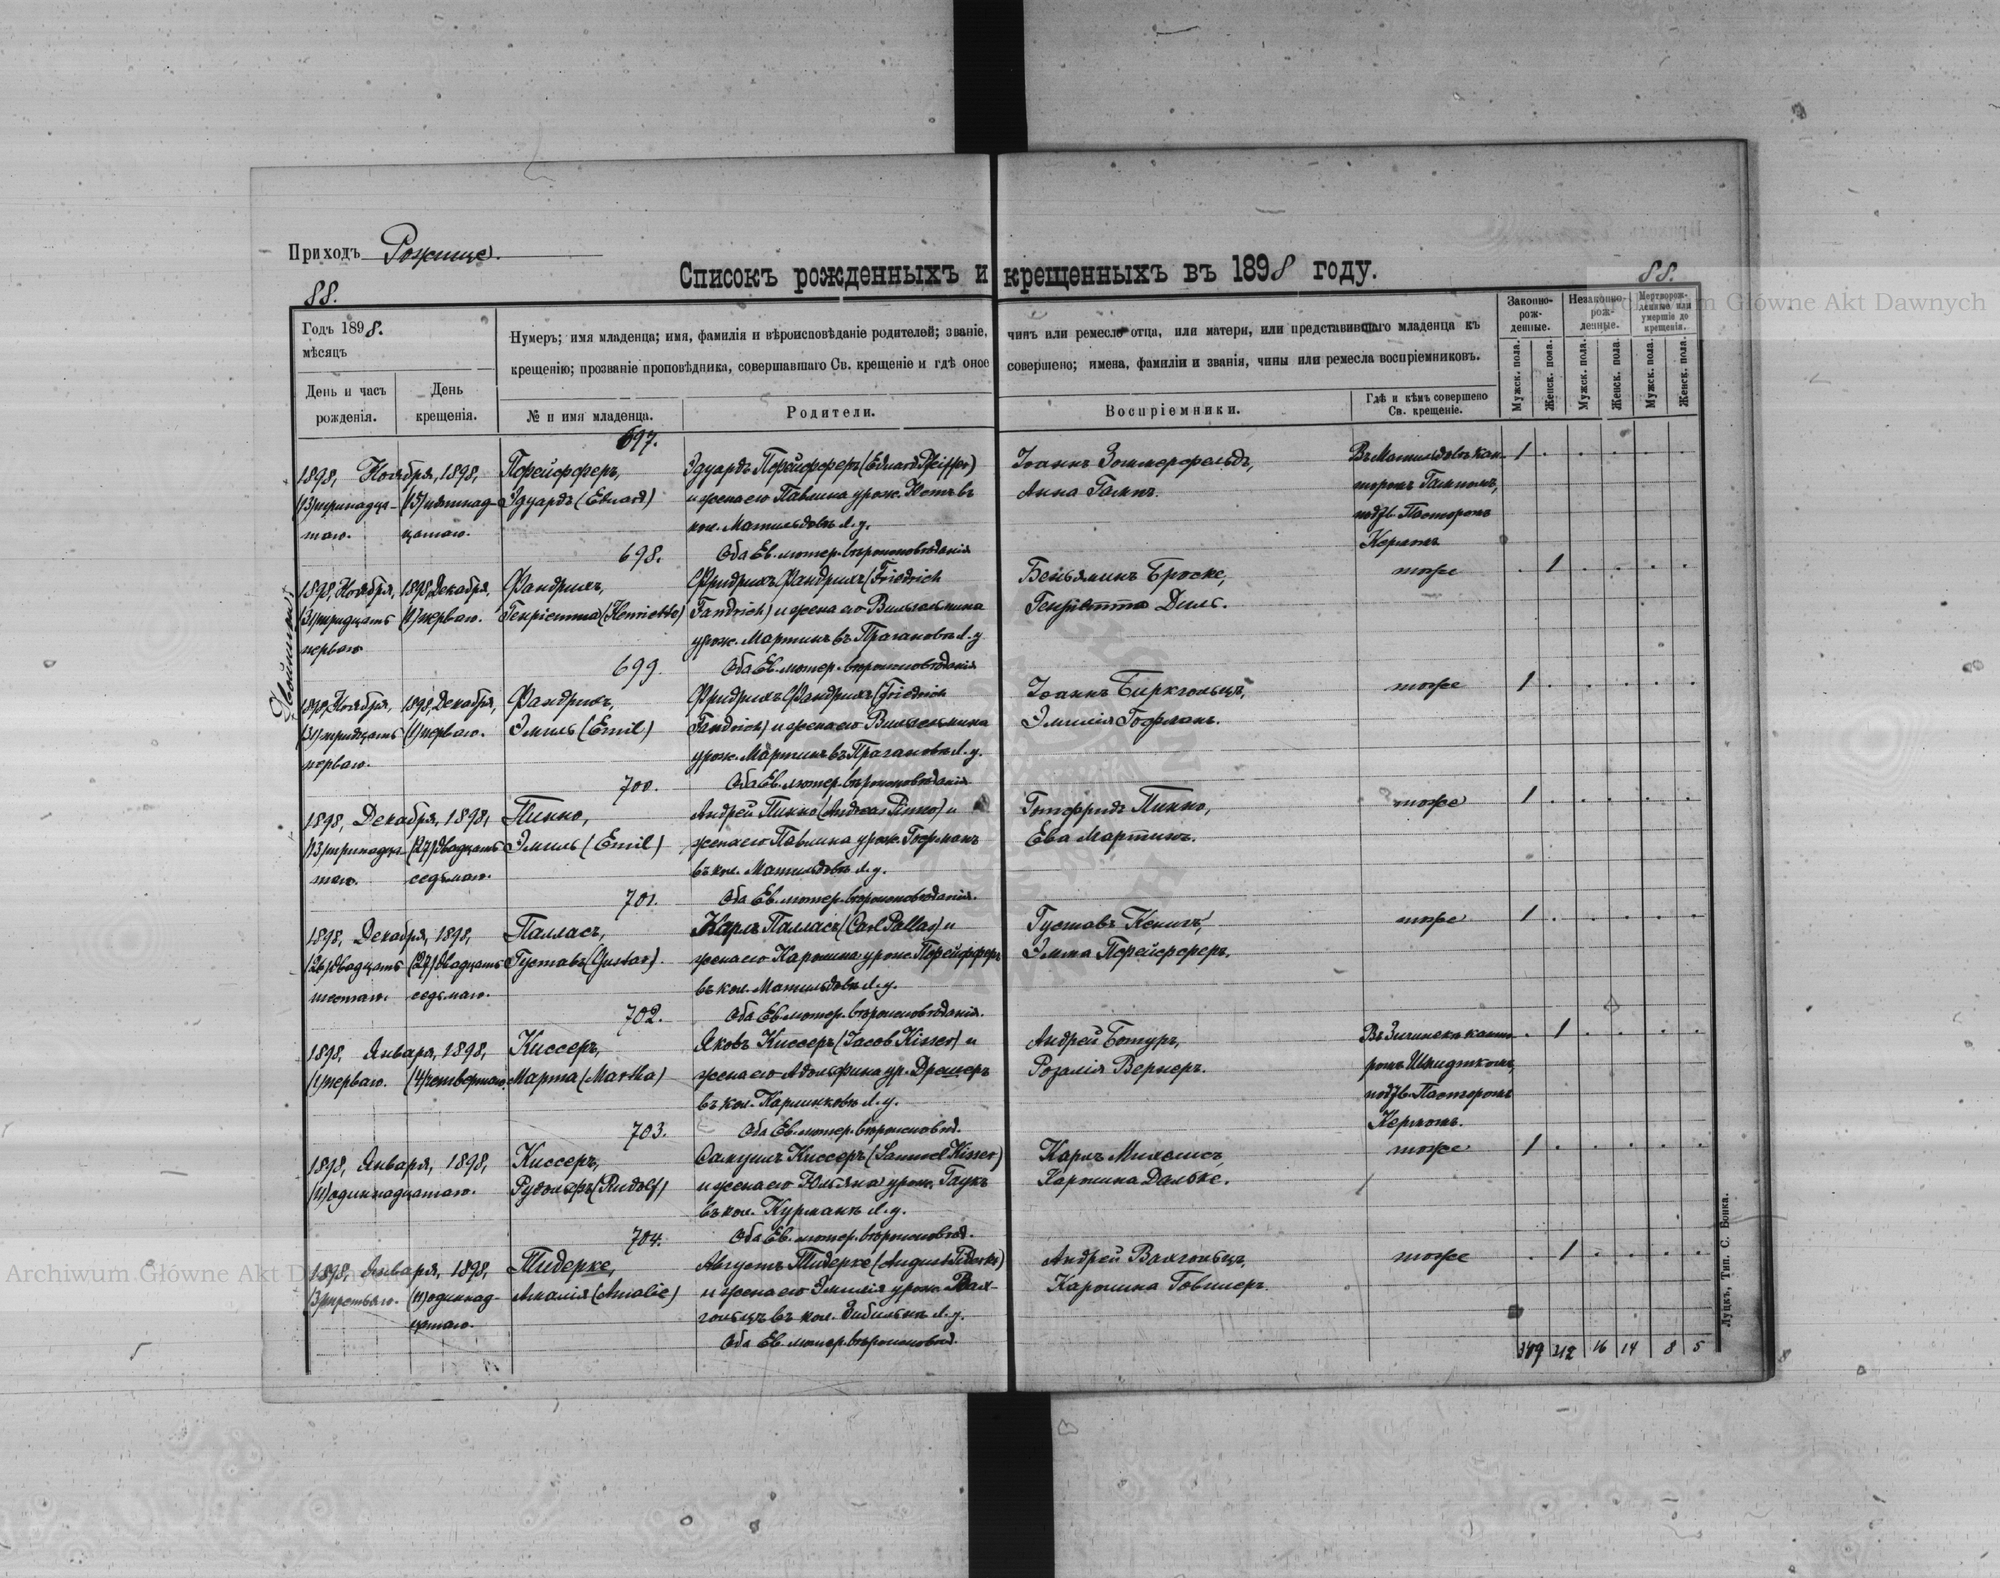 Приходъ Рожище.
Списокъ рожденныхъ и крещенныхъ въ 1898 году.
88.
88.
Годъ 1898.
мѣсяцъ
День и часъ рожденія.
День крещенія.
Нумеръ; имя младенца; имя, фамилія и вѣроисповѣданіе родителей; званіе, чинъ или ремесло отца, или матери, или представившаго младенца къ
крещенію; прозваніе проповѣдника, совершавшаго Св. крещеніе и гдѣ оное совершено; имена, фамиліи и званія, чины или ремесла воспріемниковъ.
№ и имя младенца.
Родители.
Воспріемники.
Гдѣ и кѣмъ совершено Св. крещеніе.
Законно-рож-денные.
Незаконно-рож-денные.
Мертворож-денные или умершіе до крещенія.
Мужск. пола.
Женск. пола.
Мужск. пола.
Женск. пола.
Мужск. пола.
Женск. пола.
697.
1898, Ноября, 1898,
(13) тринадца-
таго.
(15) пятнад-
цатаго.
Пфейфферъ,
Эдуардъ (Eduard)
Эдуардъ Пфейфферъ (Eduard Pfeiffer)
и жена его Павлина урож.
кол. Матильдовъ Л. у.
Оба Ев. лютер. вѣроисповѣданія
Іоаннъ Зоммерфельдъ,
Анна Гампъ.
Въ Матильдовъ кан-
торомъ Гампомъ,
подтв. Пасторомъ
Керномъ
1
698.
Двойники
1898, Ноября,
(31) тридцать
перваго
1898, Декабря,
(1) перваго.
Фандрихъ,
Генріетта (Henriette)
Фридрихъ Фандрихъ (Friedrich
Fandrich) и жена его Вильгельмина
урож. Мартинъ въ Л. у
Оба Ев. лютер. вѣроисповѣданія
Беньяминъ Броске,
Генріетта Дилс.
тоже
1
699.
1898, Ноября,
(31) тридцать
перваго.
1898, Декабря,
(1) перваго.
Фандрихъ,
Эмиль (Emil)
Фридрихъ Фандрихъ (Friedrich
Fandrich) и жена его Вильгельмина
урож. Мартинъ въ Л. у.
Оба Ев. лютер. вѣроисповѣданія
Іоаннъ Биркгольцъ,
Эмилія Гофманъ.
тоже
1
700.
1898, Декабря, 1898,
(13) тринадца-
таго.
(27) двадцать
седьмаго.
Пинно,
Эмиль (Emil)
Андрей Пинно (Andreas Pinno) и
жена его Павлина урож. Гофманъ
въ кол. Матильдовъ Л. у.
Оба Ев. лютер. вѣроисповѣданія.
Готфридъ Пинно,
Ева Мартинъ.
тоже
1
701.
1898, Декабря, 1898,
(26) двадцать
шестаго.
(27) двадцать
седьмаго.
Палласъ,
Густавъ (Gustav).
Карлъ Палласъ (Carl Pallas) и
жена его Каролина урож. Пфейфферъ
въ кол. Матильдовъ Л. у.
Оба Ев. лютер. вѣроисповѣданія.
Густавъ Кенигъ,
Эмма Пфейфферъ.
тоже
1
702.
1898, Января, 1898,
(1) перваго.
(4) четвертаго.
Киссеръ,
Марта (Martha)
Яковъ Киссеръ (Jacob Kisser) и
жена его Адольфина ур. Дрешеръ
въ кол. Л. у.
Оба Ев. лютер. вѣроисповѣд.
Андрей
Розалія Вернеръ.
канто-
ромъ Шмидткомъ,
подтв. Пасторомъ
Керномъ.
1
703.
1898, Января, 1898,
(11) одиннадцатаго.
Киссеръ,
Рудольфъ (Rudolf)
Самуилъ Киссеръ (Samuel Kisser)
и жена его Юльяна урож. Гаукъ
въ кол. Л. у.
Оба Ев. лютер. вѣроисповѣд.
Карлъ Михелисъ,
Каролина Дальке.
тоже
1
704.
1898, Января, 1898,
(3) третьяго.
(11) одиннад-
цатаго.
Тидерке,
Амалія (Amalie)
Августъ Тидерке (August Tiderke)
и жена его Эмилія урож. Вах-
гольцъ въ кол. Л. у.
Оба Ев. лютер. вѣроисповѣд.
Андрей Вахгольцъ,
Каролина
тоже
1
212 16 14 8 5
Луцкъ, Тип. С. Бонка.
Archiwum Główne Akt Dawnych
Archiwum Główne Akt Dawnych